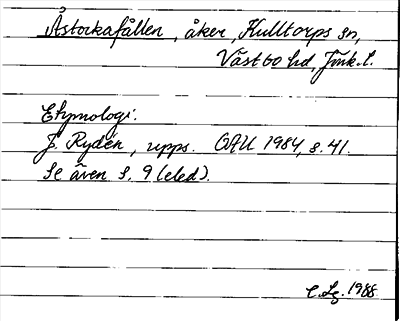 Åstockafållen, åker, Kulltorps sn,
Västbo hd, Jönk. l.
Etymologi.
J. Rydén, upps. OAU 1984, s. 41.
Se även s. 9 (eled).
C. Lg. 1988